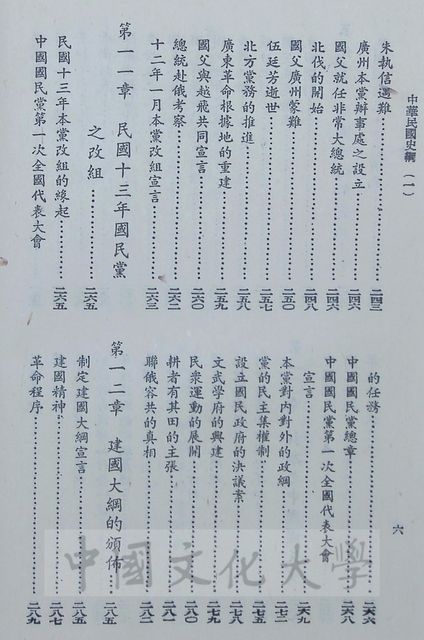 中華民國史綱（一）
朱執信遇難……二四三
廣州本黨辦事處之設立……二四六
國父就任非常大總統……二四六
北伐的開始……二四八
國父廣州蒙難……二五〇
伍廷芳逝世……二五七
北方黨務的推進……二五八
廣東革命根據地的重建……二五九
國父與越飛共同宣言……二六〇
總統赴俄考察……二六二
十二年一月本黨改組宣言……二六三
第一一章　民國十三年國民黨
之改組……二六五
民國十三年本黨改組的緣起……二六五
中國國民黨第一次全國代表大會
的任務……二六六
中國國民黨總章……二六八
中國國民黨第一次全國代表大會
宣言……二六九
本黨對內對外的政綱……二七二
黨的民主集權制……二七五
設立國民政府的決議案……二七八
文武學府的興建……二七九
民衆運動的展開……二八〇
耕者有其田的主張……二八一
聯俄容共的真相……二八二
第一二章　建國大綱的頒佈……二八五
制定建國大綱宣言……二八五
建國精神……二八七
革命程序……二八九
六
中國文化大學